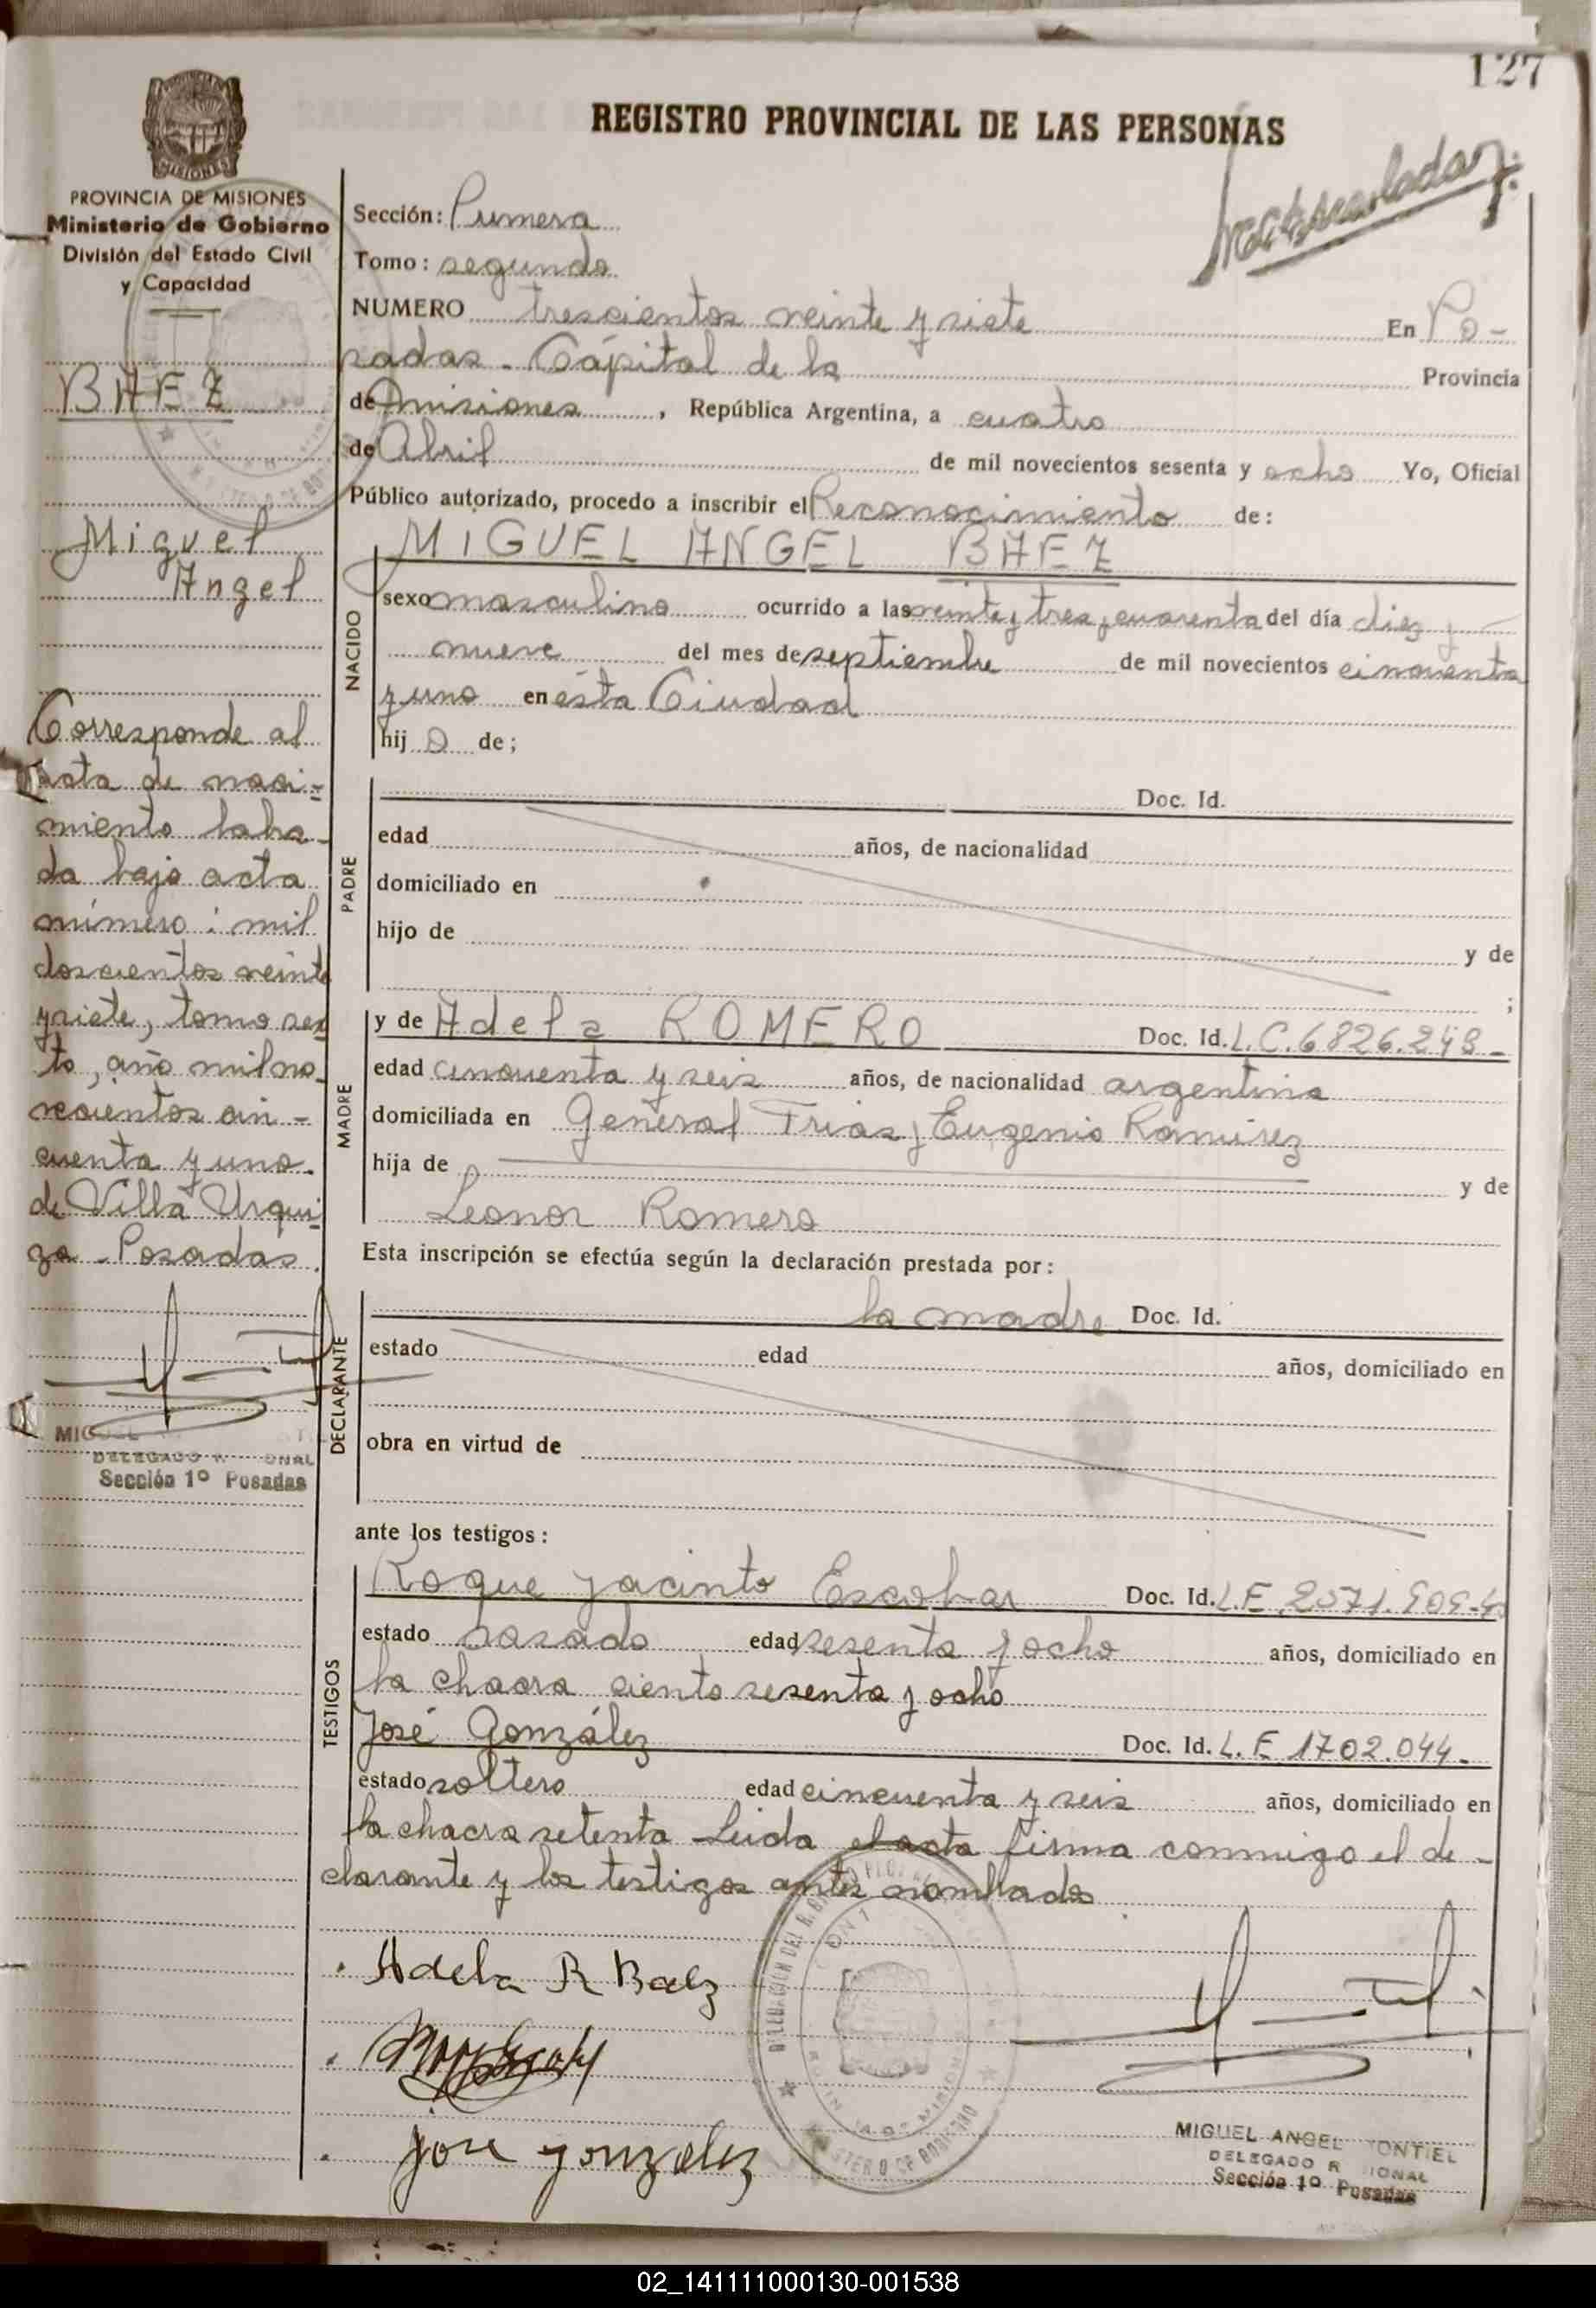 127
REGISTRO PROVINCIAL DE LAS PERSONAS
PROVINCIA DE MISIONES
Ministerio de Gobierno
División del Estado Civil
y Capacidad
BAEZ
Miguel
Angel
Corresponde al
acta de naci-
miento laba-
da bajo acta
número: mil
doscientos veinte
y siete, tomo sex
to, año mil no-
vecientos cin-
cuenta y uno.
de Villa Urqui-
za - Posadas.
MIGUEL
DELEGADO
Sección 1º Posadas
Sección: Primera
Tomo: segundo
NUMERO trescientos veinte y siete En Po-
sadas - Cápital de la Provincia
de Misiones, República Argentina, a cuatro
de Abril de mil novecientos sesenta y ocho Yo, Oficial
Público autorizado, procedo a inscribir el Reconocimiento de:
NACIDO
MIGUEL ANGEL BAEZ
sexo masculino ocurrido a las veinte y tres y cuarenta del día diez y
nueve del mes de septiembre de mil novecientos cincuenta
y uno en ésta Ciudad
hij o de;
PADRE
Doc. Id.
edad años, de nacionalidad
domiciliado en
hijo de y de
;
MADRE
y de Adela ROMERO Doc. Id. L.C. 6826.248-
edad cincuenta y seis años, de nacionalidad argentina
domiciliada en General Frias y Eugenio Ramirez
hija de y de
Leonor Romero
Esta inscripción se efectúa según la declaración prestada por:
DECLARANTE
la madre Doc. Id.
estado edad años, domiciliado en
obra en virtud de
ante los testigos:
TESTIGOS
Roque Jacinto Escobar Doc. Id. L.E.
estado casado edad sesenta y ocho años, domiciliado en
la chacra ciento sesenta y ocho
José González Doc. Id. L.E. 1702.044-
estado soltero edad cincuenta y seis años, domiciliado en
la chacra setenta Leida el acta firma conmigo el de-
clarante y los testigos antes nombrados
Adela R Baez
Jose Gonzalez
MIGUEL ANGEL MONTIEL
DELEGADO R IONAL
Sección 1º Posadas
02_141111000130-001538